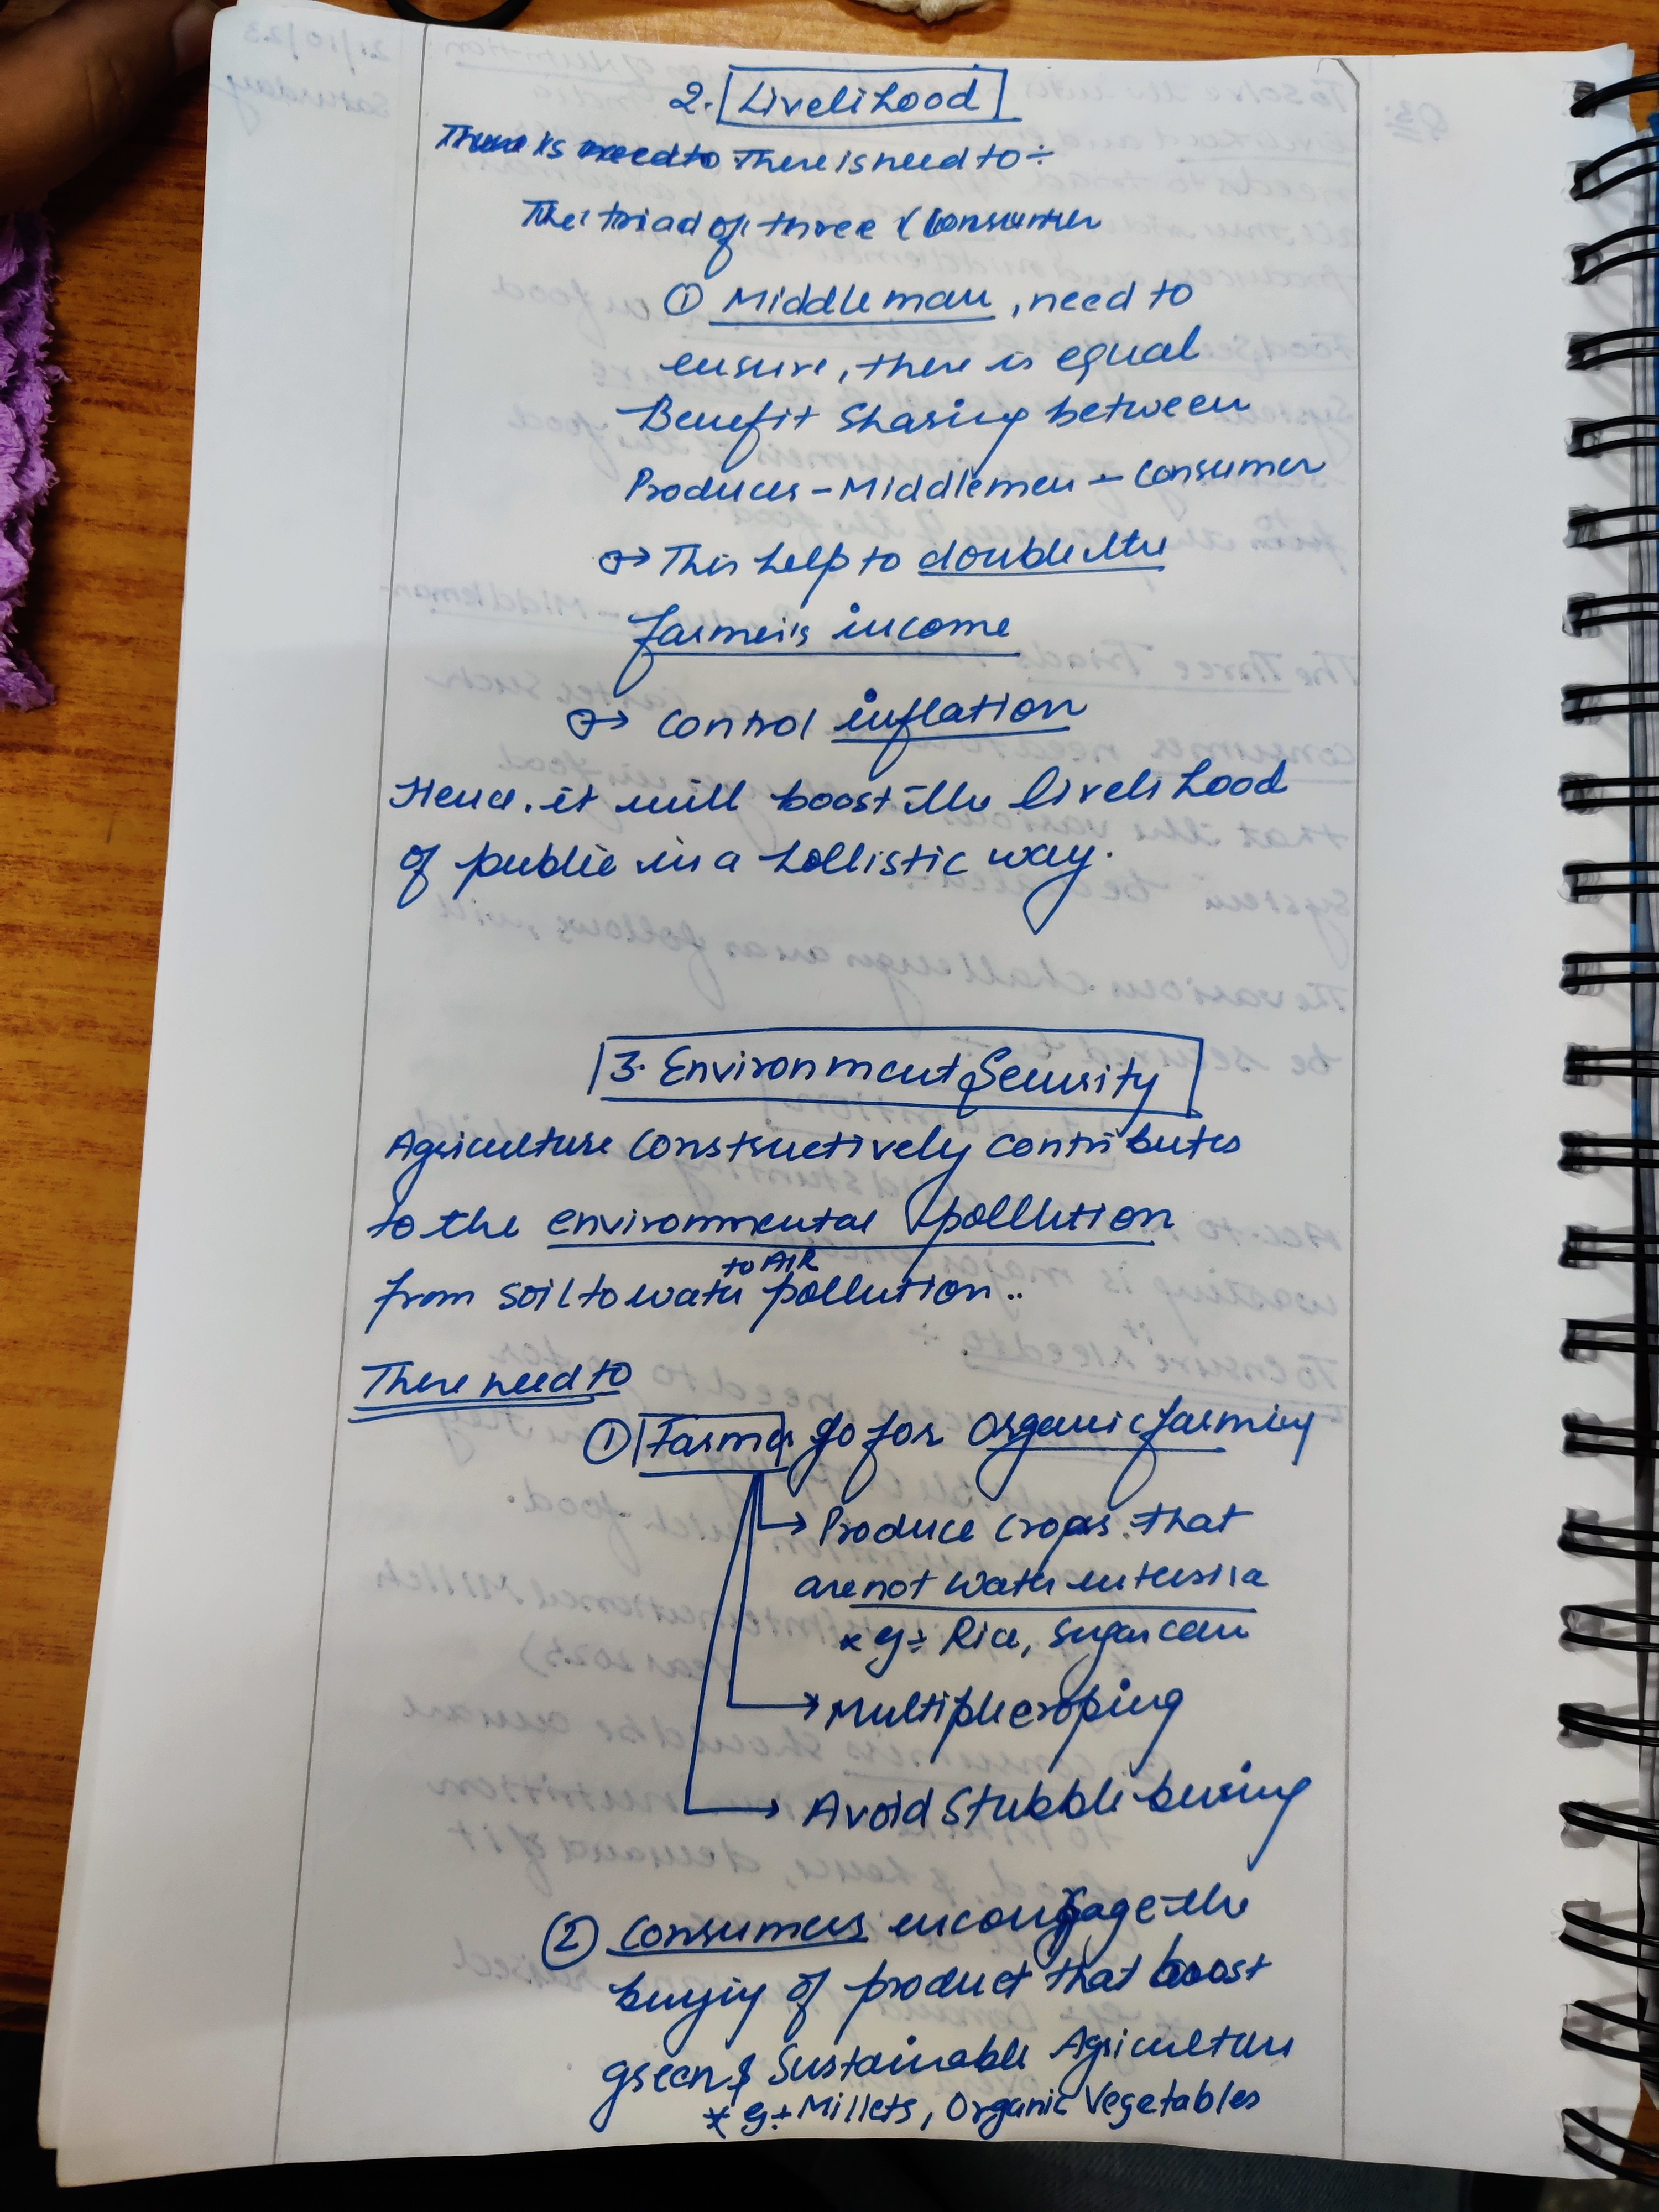 2. Livelihood
There is need to There is need to ÷
The triad of three (Consumer
① Middleman, need to
ensure, there is equal
Benefit Sharing between
Producers - Middlemen - Consumer
→ This help to double the
farmer's income
→ Control inflation
Hence, it will boost the livelihood
of public in a hollistic way.
3. Environment Security
Agriculture constructively contributes
to the environmental pollution
to AIR
from soil to water pollution..
There need to
① Farmer go for organic farming
→ Produce crops that
are not water intensive
* eg ÷ Rice, Sugarcane
→ Multiple croping
→ Avoid Stubble burning
② Consumers encourage the
buying of product that boost
green & Sustainable Agriculture
* eg ÷ Millets, Organic Vegetables